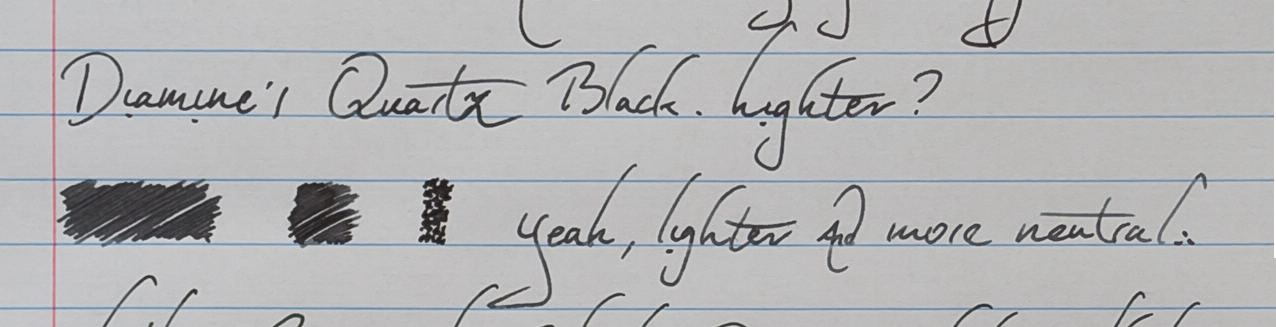 Diamine's Quartz Black. lighter?
yeah, lighter and more neutral.